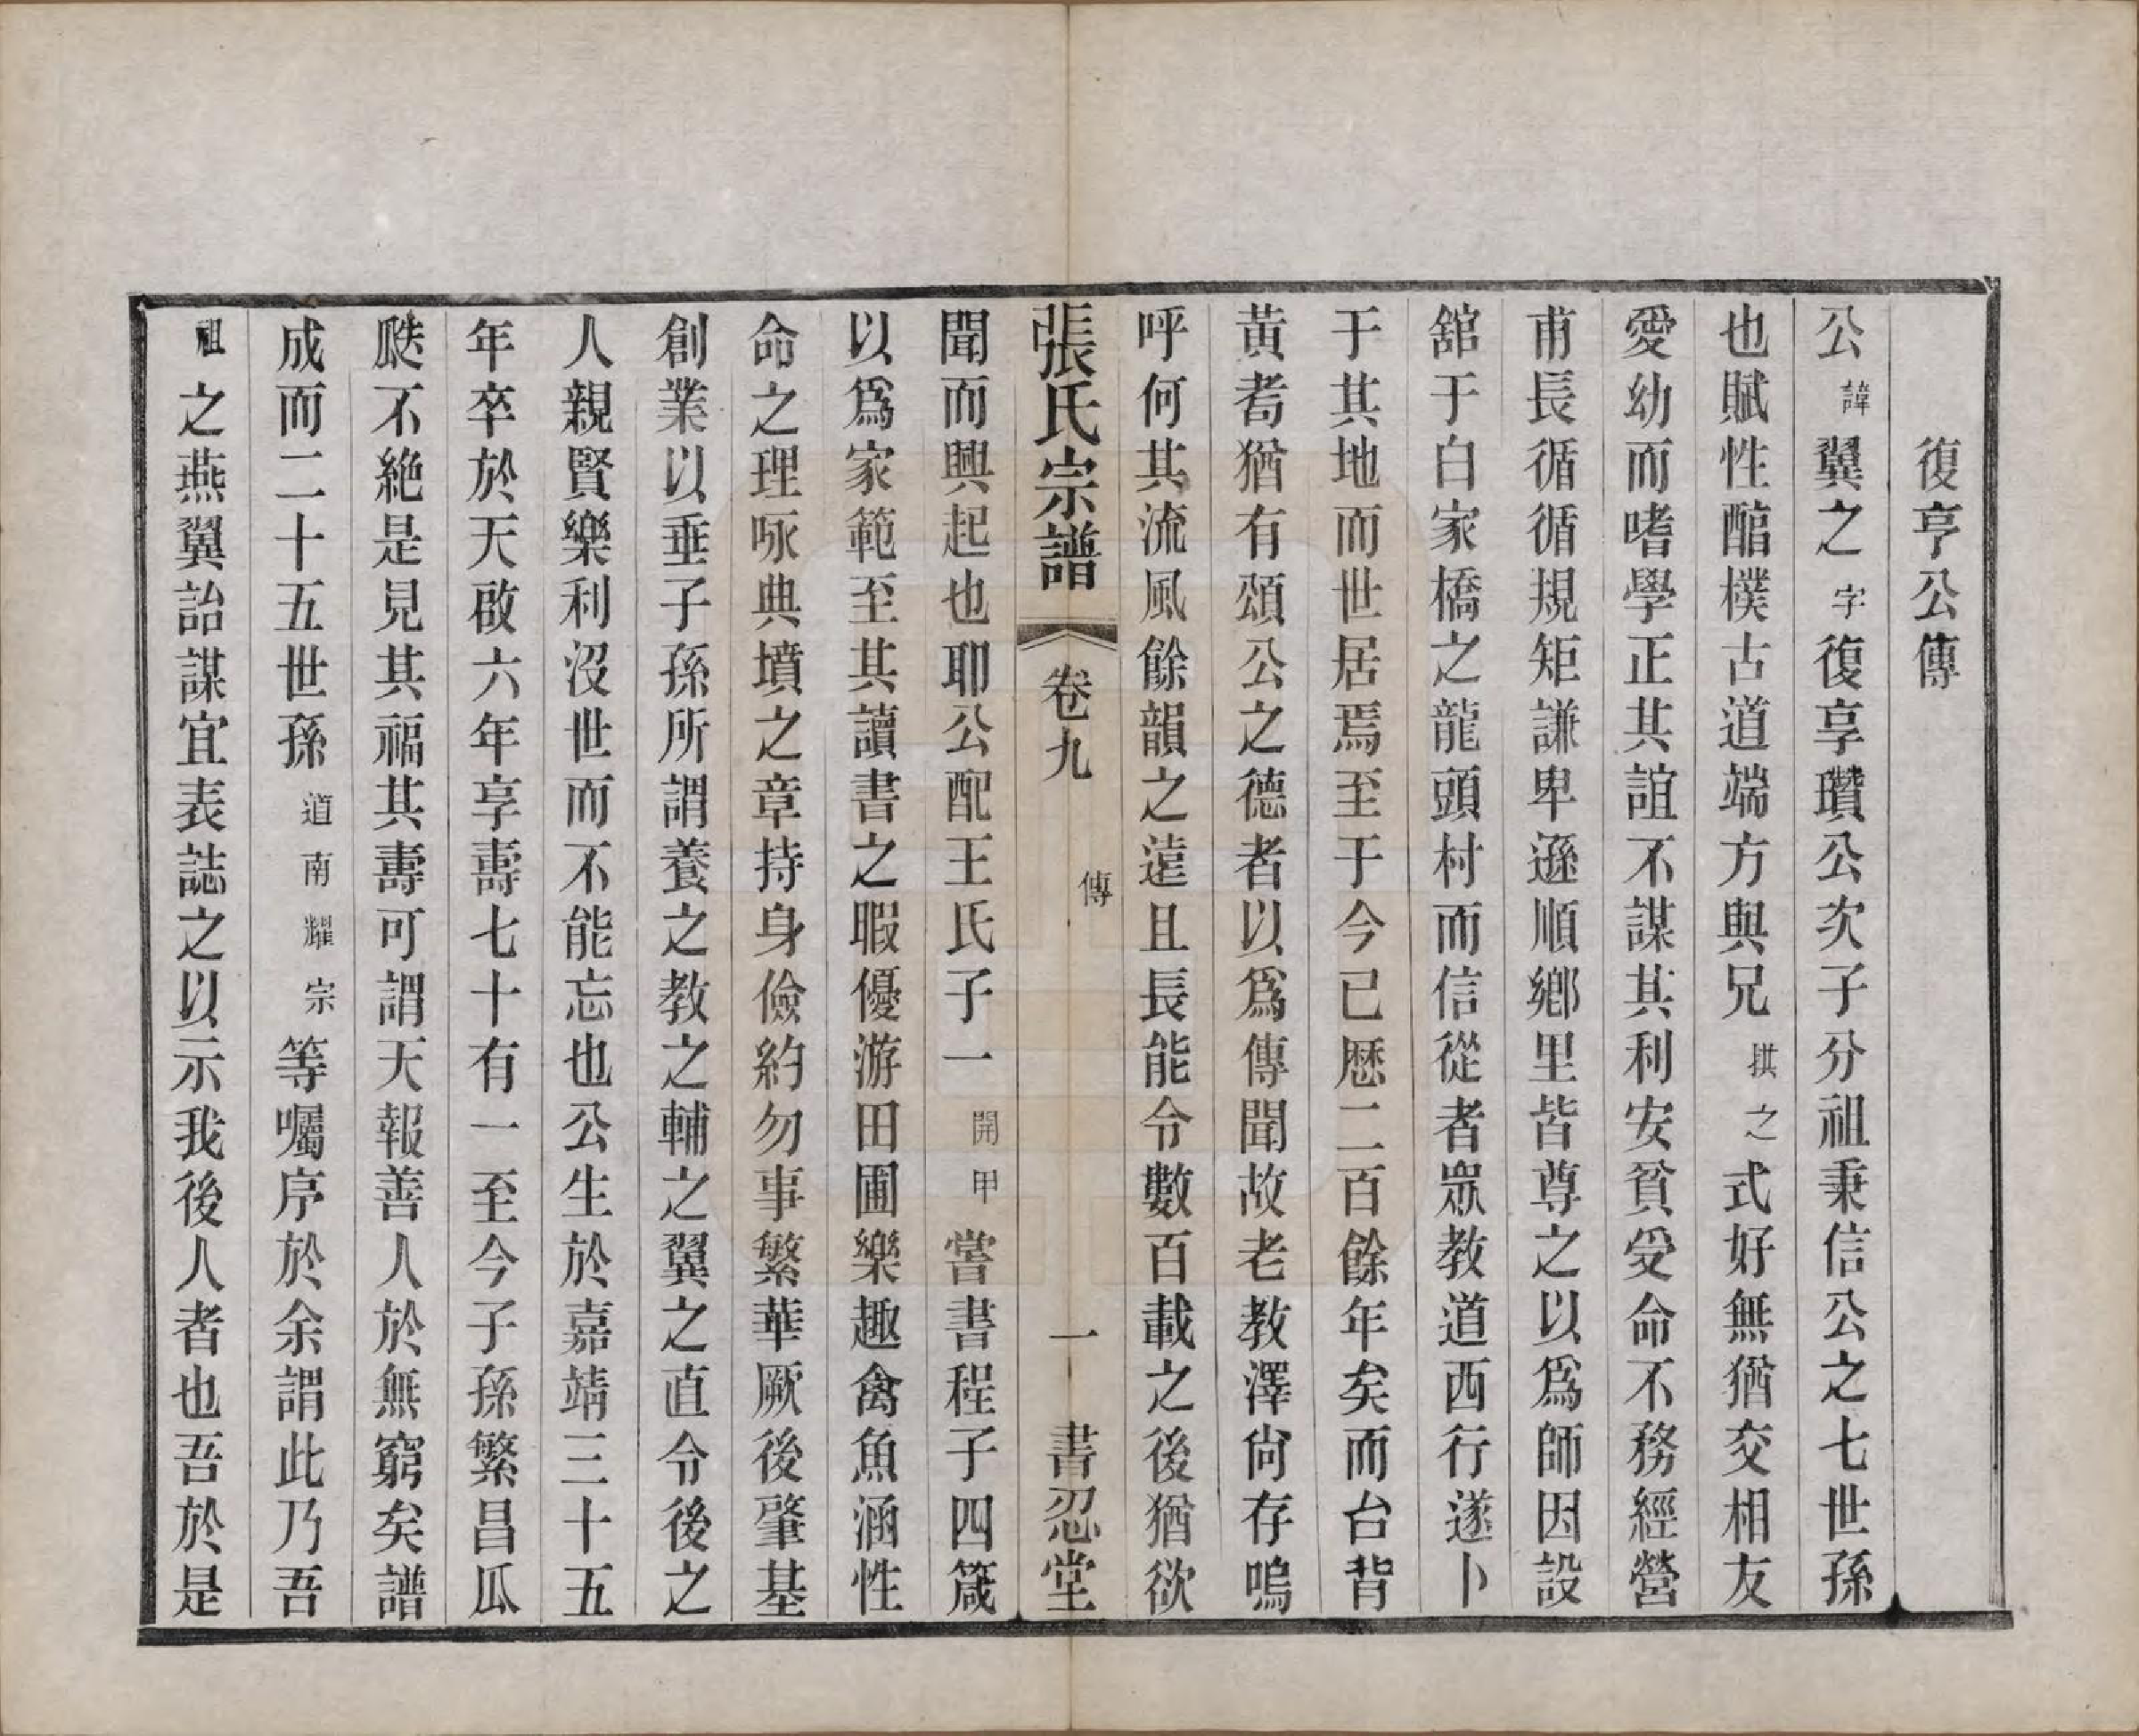 復亨公傳
公諱翼之字復享瓚公次子分祖秉信公之七世孫
也賦性醕樸古道端方與兄拱之式好無猶交相友
愛幼而嗜學正其誼不謀其利安貧受命不務經營
甫長循循規矩謙卑遜順鄉里皆尊之以爲師因設
舘于白家橋之龍頭村而信從者眾教道西行遂卜
于其地而世居焉至于今已歷二百餘年矣而台背
黃耇猶有頌公之德者以爲傳聞故老教澤尙存嗚
呼何其流風餘韻之遠且長能令數百載之後猶欲
張氏宗譜 卷九 傳 一 書忍堂
聞而興起也耶公配王氏子一開甲嘗書程子四箴
以爲家範至其讀書之暇優游田圃樂趣禽魚涵性
命之理咏典墳之章持身儉約勿事繁華厥後肇基
創業以垂子孫所謂養之教之輔之翼之直令後之
人親賢樂利沒世而不能忘也公生於嘉靖三十五
年卒於天啟六年享壽七十有一至今子孫繁昌瓜
瓞不絶是見其福其壽可謂天報善人於無窮矣譜
成而二十五世孫道南耀宗等囑序於余謂此乃吾
祖之燕翼詒謀宜表誌之以示我後人者也吾於是